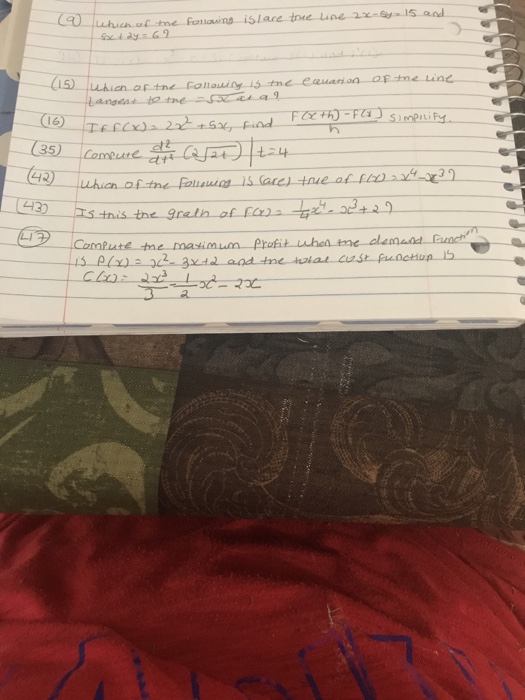 (9) Which of the following is/are true line 2x-5y=15 and
5x+2y=6?
(15) Which of the following is the equation of the line
tangent to the = √x at 9?
(16) If F(x)= 2x² + 5x, find F(x+h)-F(x)/h simplify.
(35) Compute d²/dt² (2√2t) | t=4
(42) Which of the following is (are) true of f(x) = x⁴-x³?
(43) Is this the graph of F(x) = 1/4x⁴ - x³ + 2?
(47) Compute the maximum profit when the demand function
is P(x) = x² - 3x+2 and the total cost function is
C(x) = 2x³/3 - 1/2 x² - 2x